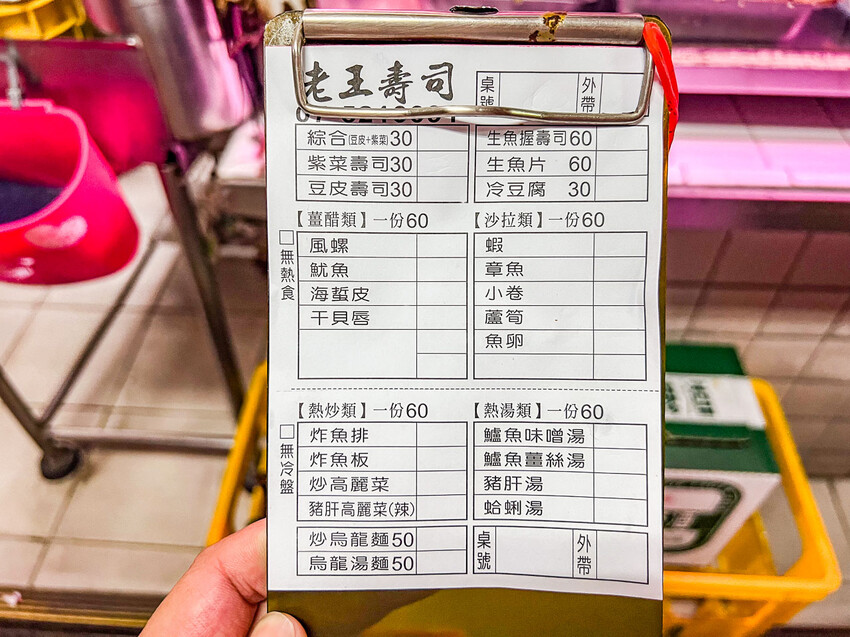 老王壽司
桌號 外帶
綜合(豆皮+紫菜)30
紫菜壽司30
豆皮壽司30
生魚握壽司60
生魚片 60
冷豆腐 30
【薑醋類】一份60
□無熱食
風螺
魷魚
海蜇皮
干貝唇
【沙拉類】一份60
蝦
章魚
小卷
蘆筍
魚卵
【熱炒類】一份60
□無冷盤
炸魚排
炸魚板
炒高麗菜
豬肝高麗菜(辣)
炒烏龍麵50
烏龍湯麵50
【熱湯類】一份60
鱸魚味噌湯
鱸魚薑絲湯
豬肝湯
蛤蜊湯
桌號 外帶